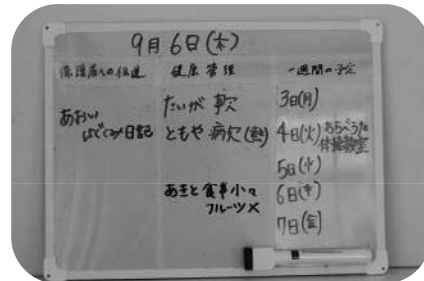 9月6日(木)
保護者への伝達
健康管理
一週間の予定
あおい
日記
たいが 事欠
ともや 病欠(熱)
あきと 食事小々
フルーツ×
3日(月)
4日(火) わらべうた
体操教室
5日(水)
6日(木)
7日(金)